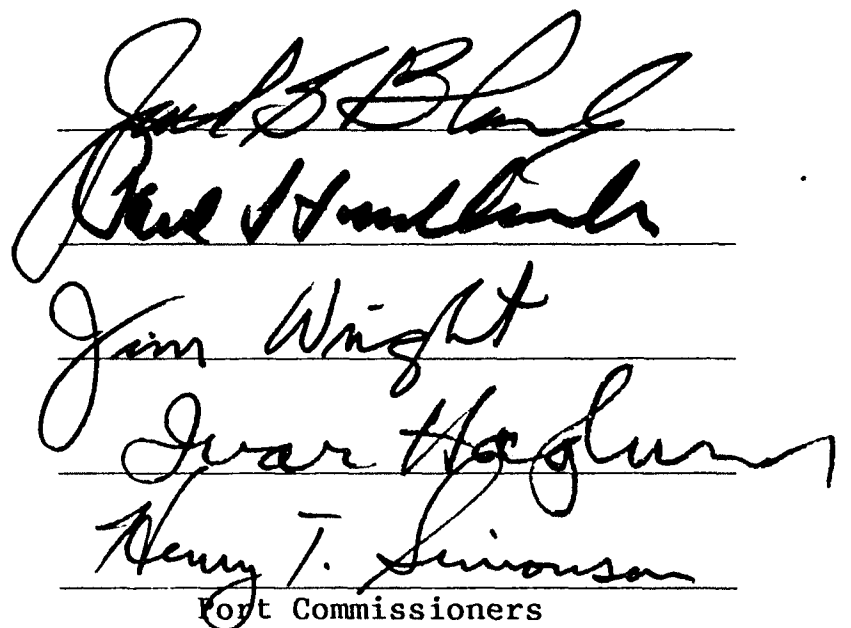 Jack S Block
Paul S Friedlander
Jim Wright
Ivar Haglund
Henry T. Simonson
Port Commissioners